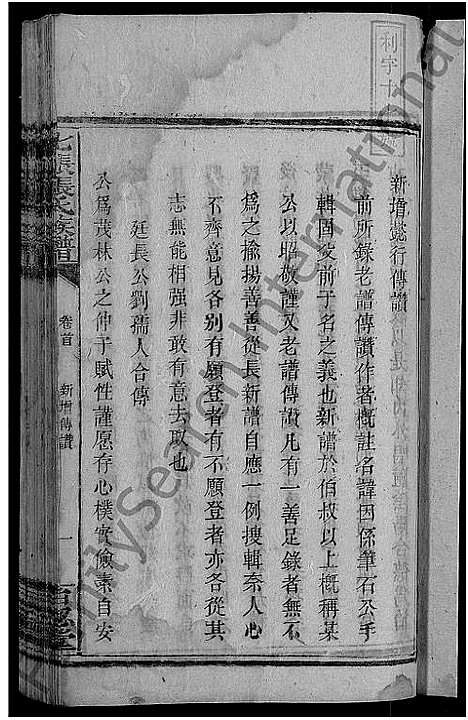 利字十
新增懿行傳讚
前所錄老譜傳讚作者概註名諱因係筆石公手
輯固從前于名之義也新譜於伯叔以上概稱某
公以昭敬謹又老譜傳讚凡有一善足錄者無不
爲之揄揚善善從長新譜自應一例搜輯奈人心
不齊意見各別有願登者有不願登者亦各從其
志無能相强非敢有意去取也
廷長公劉孺人合傳
公爲茂林公之仲子賦性謹愿存心樸實儉素自安
張氏族譜
卷首
新增傳讚
一
FamilySearch International